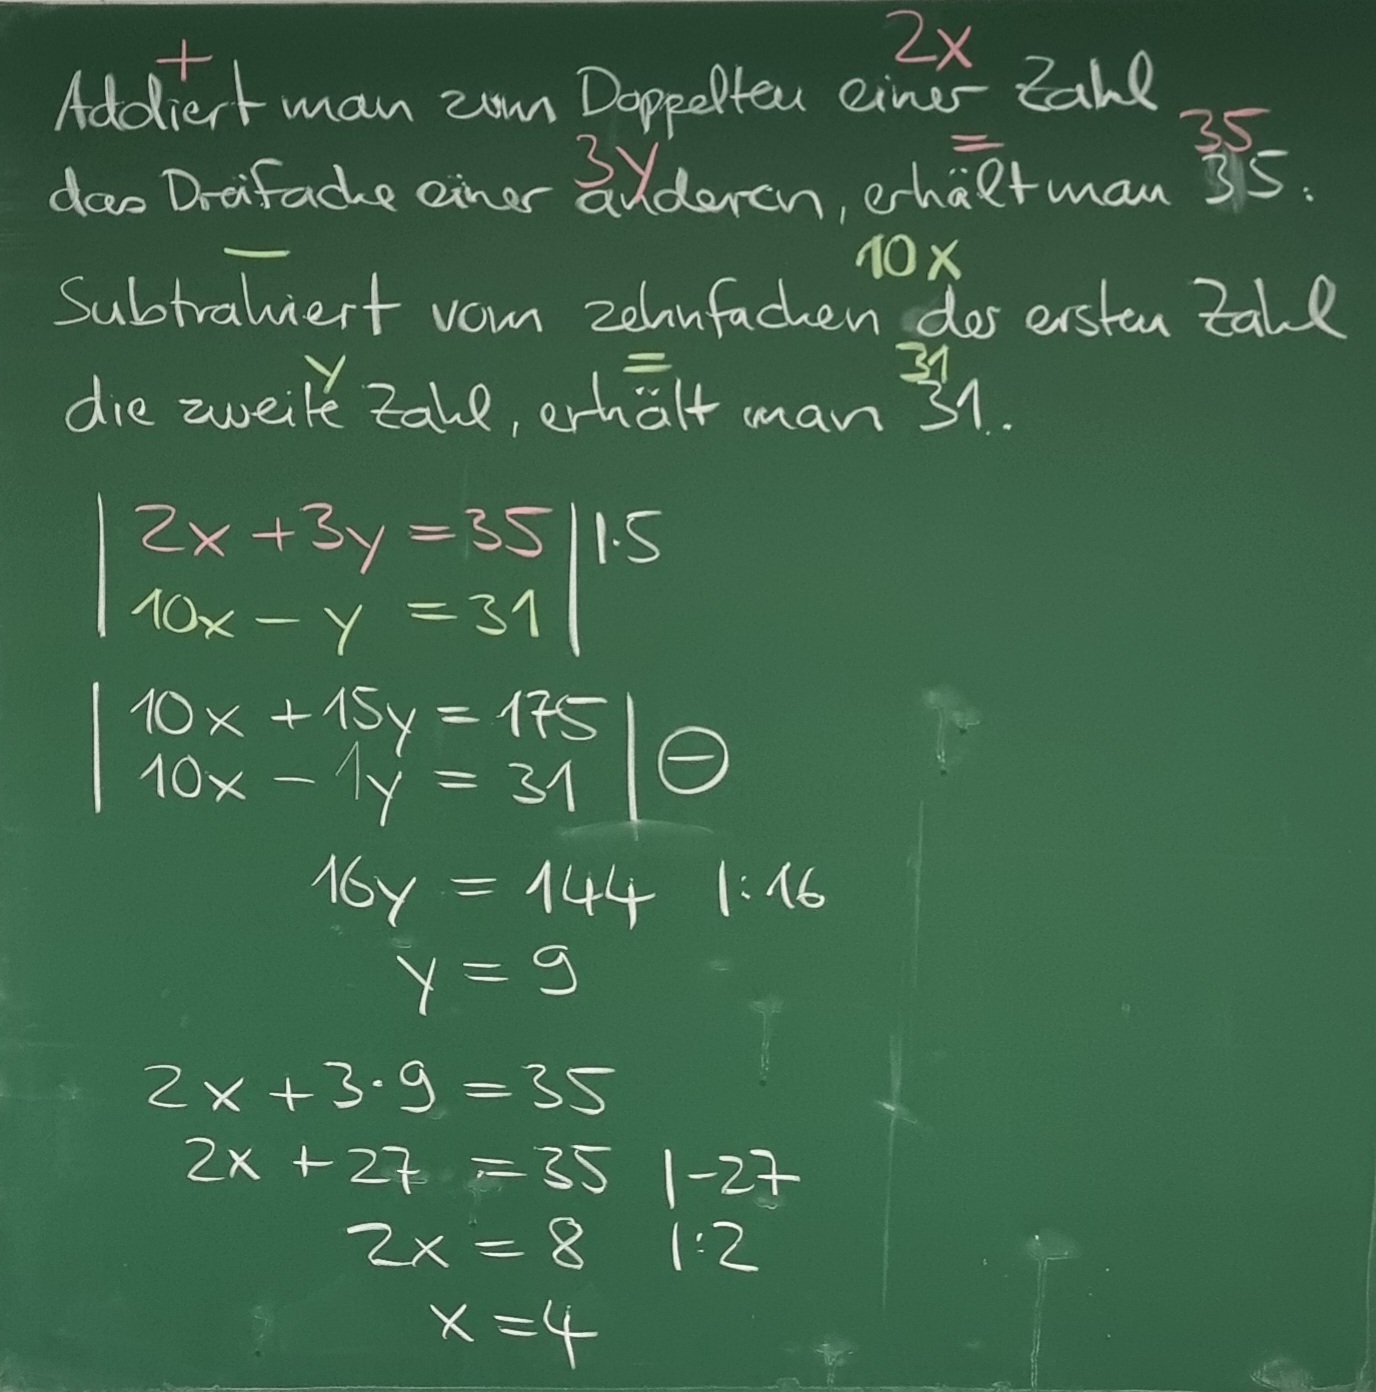 + 2x
Addiert man zum Doppelten einer Zahl
3y = 35
das Dreifache einer anderen, erhält man 35.
− 10x
Subtrahiert vom zehnfachen der ersten Zahl
y = 31
die zweite Zahl, erhält man 31.
| 2x + 3y = 35 | |·5
| 10x − y = 31 |
| 10x + 15y = 175 |
| 10x − 1y = 31 | ⊖
16y = 144 |:16
y = 9
2x + 3·9 = 35
2x + 27 = 35 |−27
2x = 8 |:2
x = 4